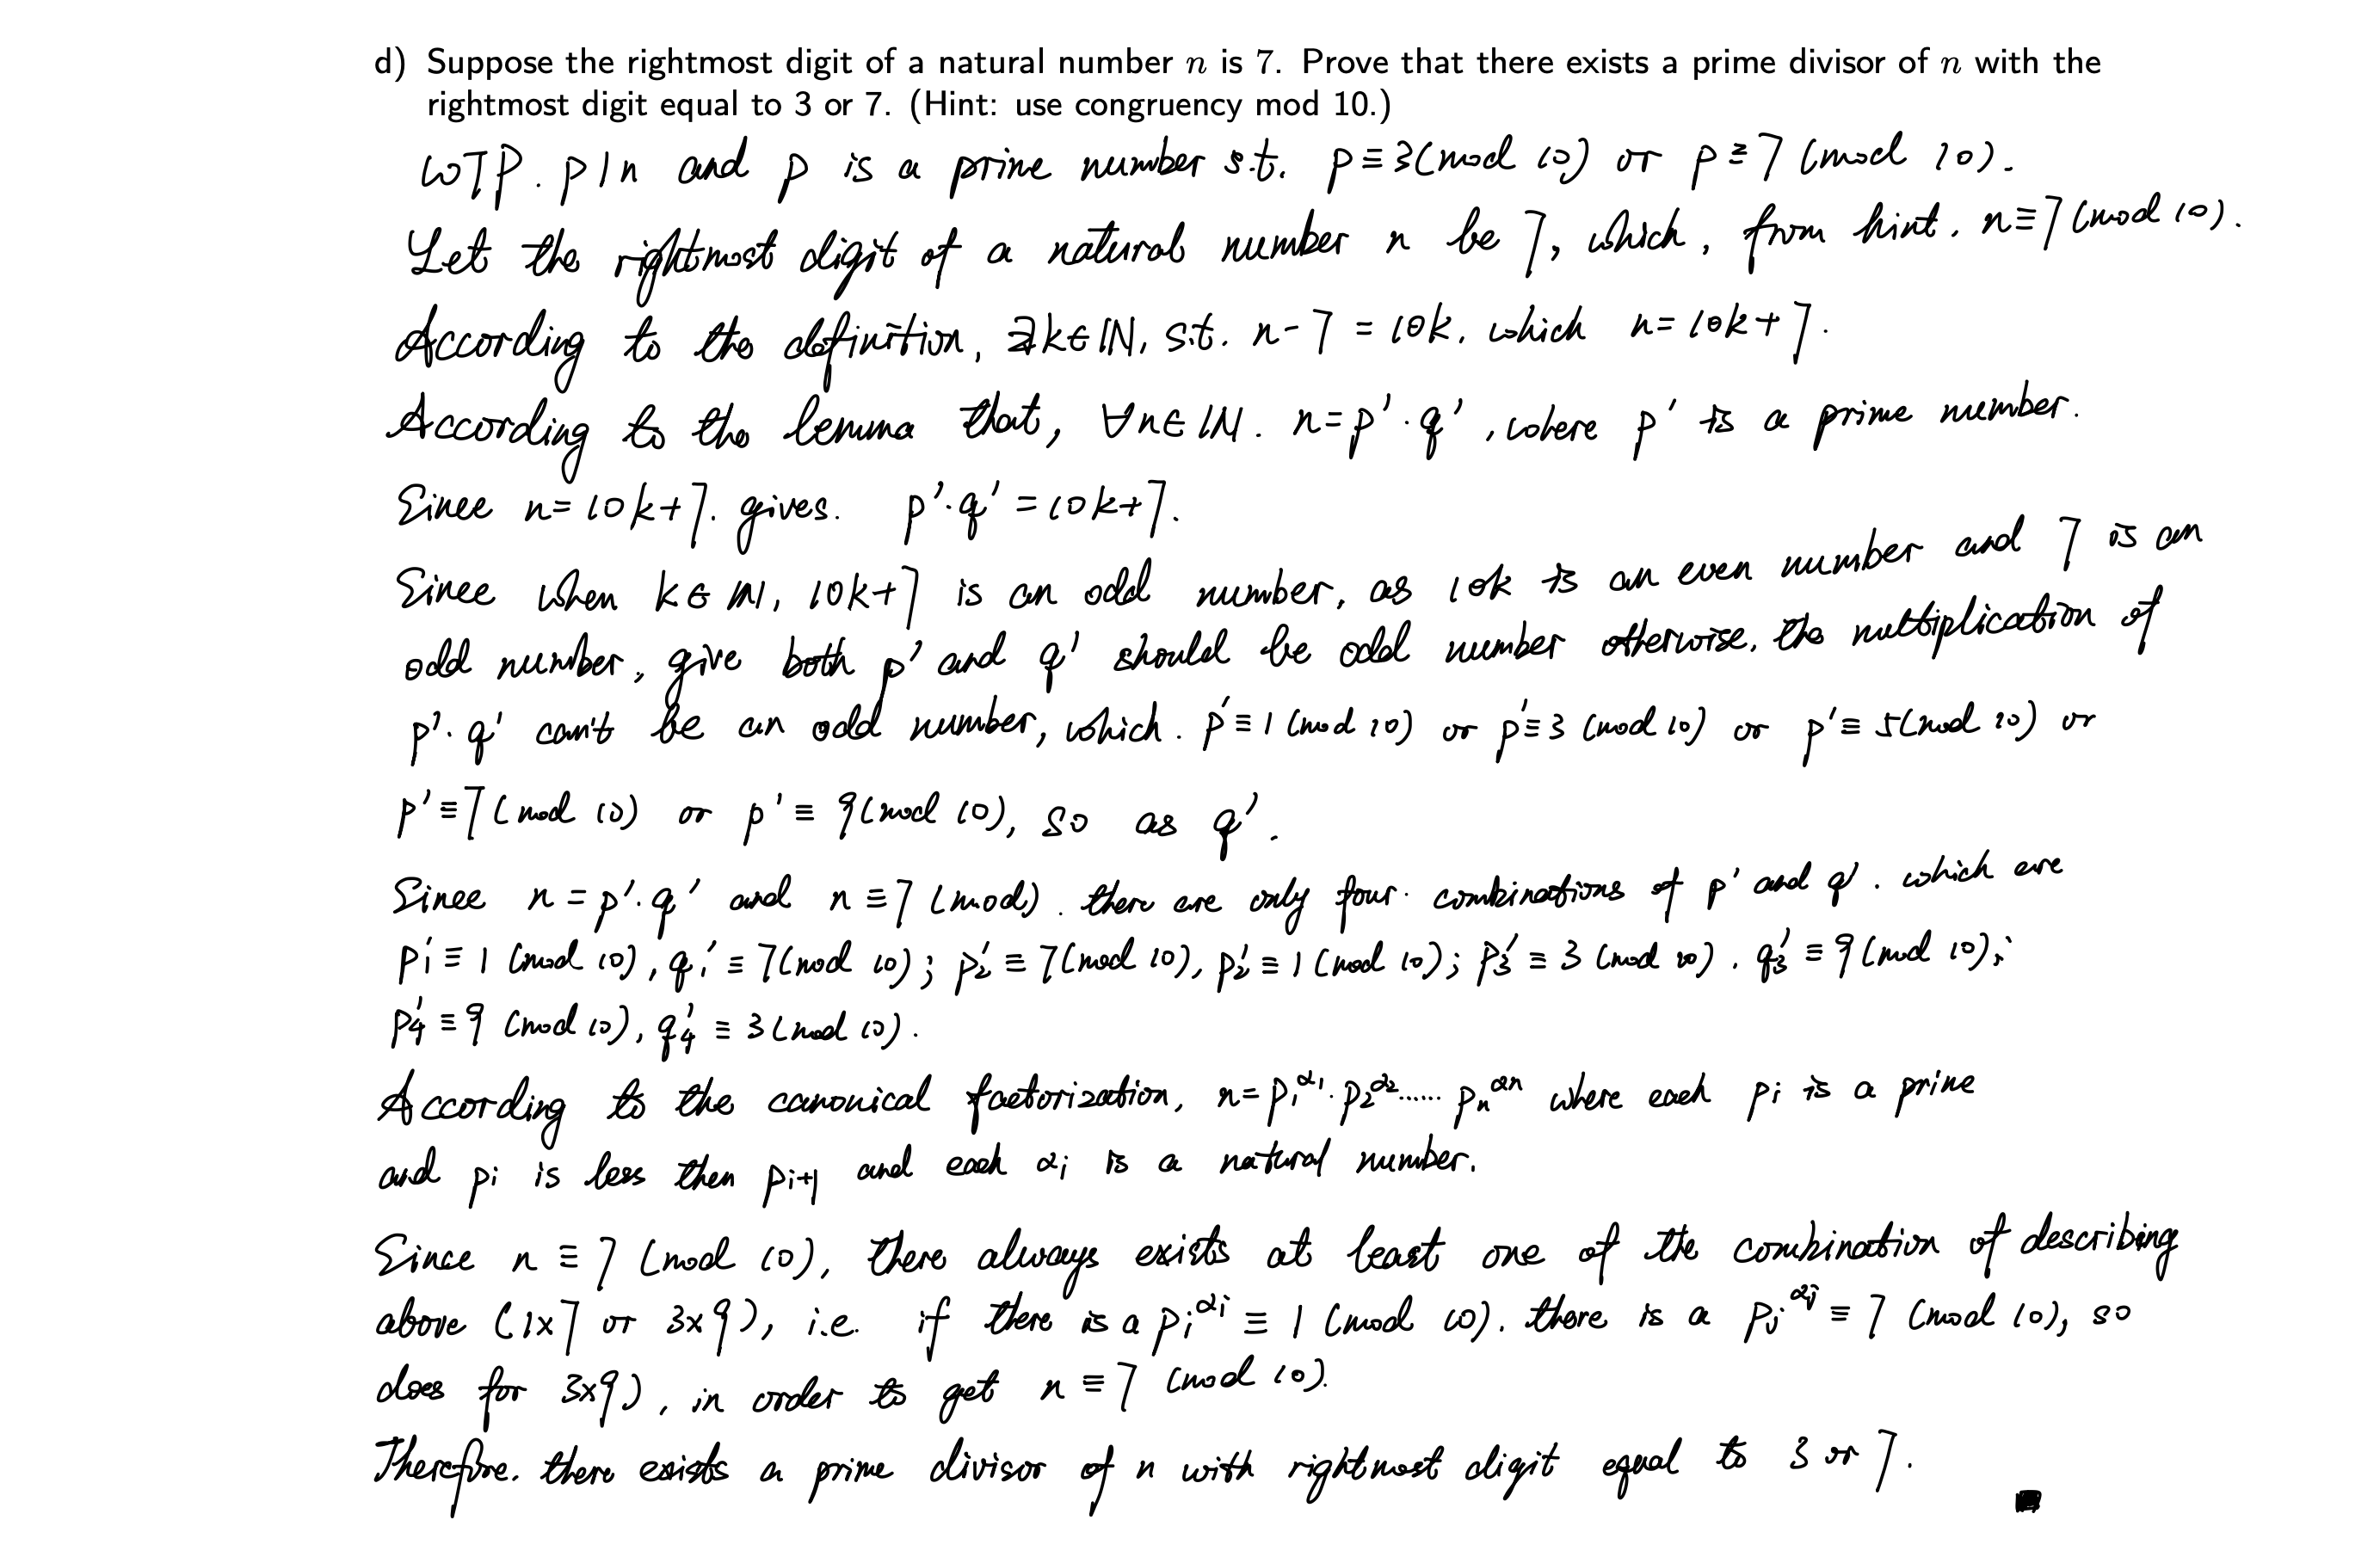 d) Suppose the rightmost digit of a natural number n is 7. Prove that there exists a prime divisor of n with the
rightmost digit equal to 3 or 7. (Hint: use congruency mod 10.)
WTP. p|n and p is a prime number s.t. p≡3(mod 10) or p≡7 (mod 10).
Let the rightmost digit of a natural number n be 7, which, from hint, n≡7 (mod 10).
According to the definition, ∃k∈ℕ, s.t. n-7 = 10k, which n=10k+7.
According to the lemma that, ∀n∈ℕ. n=p'·q', where p' is a prime number.
Since n=10k+7. gives. p'·q' =10k+7.
Since when k∈ℕ, 10k+7 is an odd number, as 10k is an even number and 7 is an
odd number, give both p' and q' should be odd number otherwise, the multiplication of
p'·q' can't be an odd number, which. p'≡1 (mod 10) or p'≡3 (mod 10) or p'≡5(mod 10) or
p'≡7(mod 10) or p'≡9(mod 10), so as q'.
Since n=p'·q' and n≡7 (mod). there are only four combinations of p' and q'. which are
p₁'≡1 (mod 10), q₁'≡7(mod 10); p₂'≡7(mod 10), p₂'≡1(mod 10); p₃'≡3 (mod 10). q₃'≡9(mod 10);
p₄'≡9 (mod 10), q₄'≡3(mod 10).
According to the canonical factorization, n=p₁^α₁·p₂^α₂...... pₙ^αn where each pᵢ is a prime
and pᵢ is less then pᵢ₊₁ and each αᵢ is a natural number.
Since n≡7 (mod 10), there always exists at least one of the combination of describing
above (1×7 or 3×9), i.e. if there is a pᵢ^αᵢ≡1 (mod 10). there is a pⱼ^αⱼ≡7 (mod 10), so
does for 3×9), in order to get n≡7 (mod 10).
Therefore. there exists a prime divisor of n with rightmost digit equal to 3 or 7.